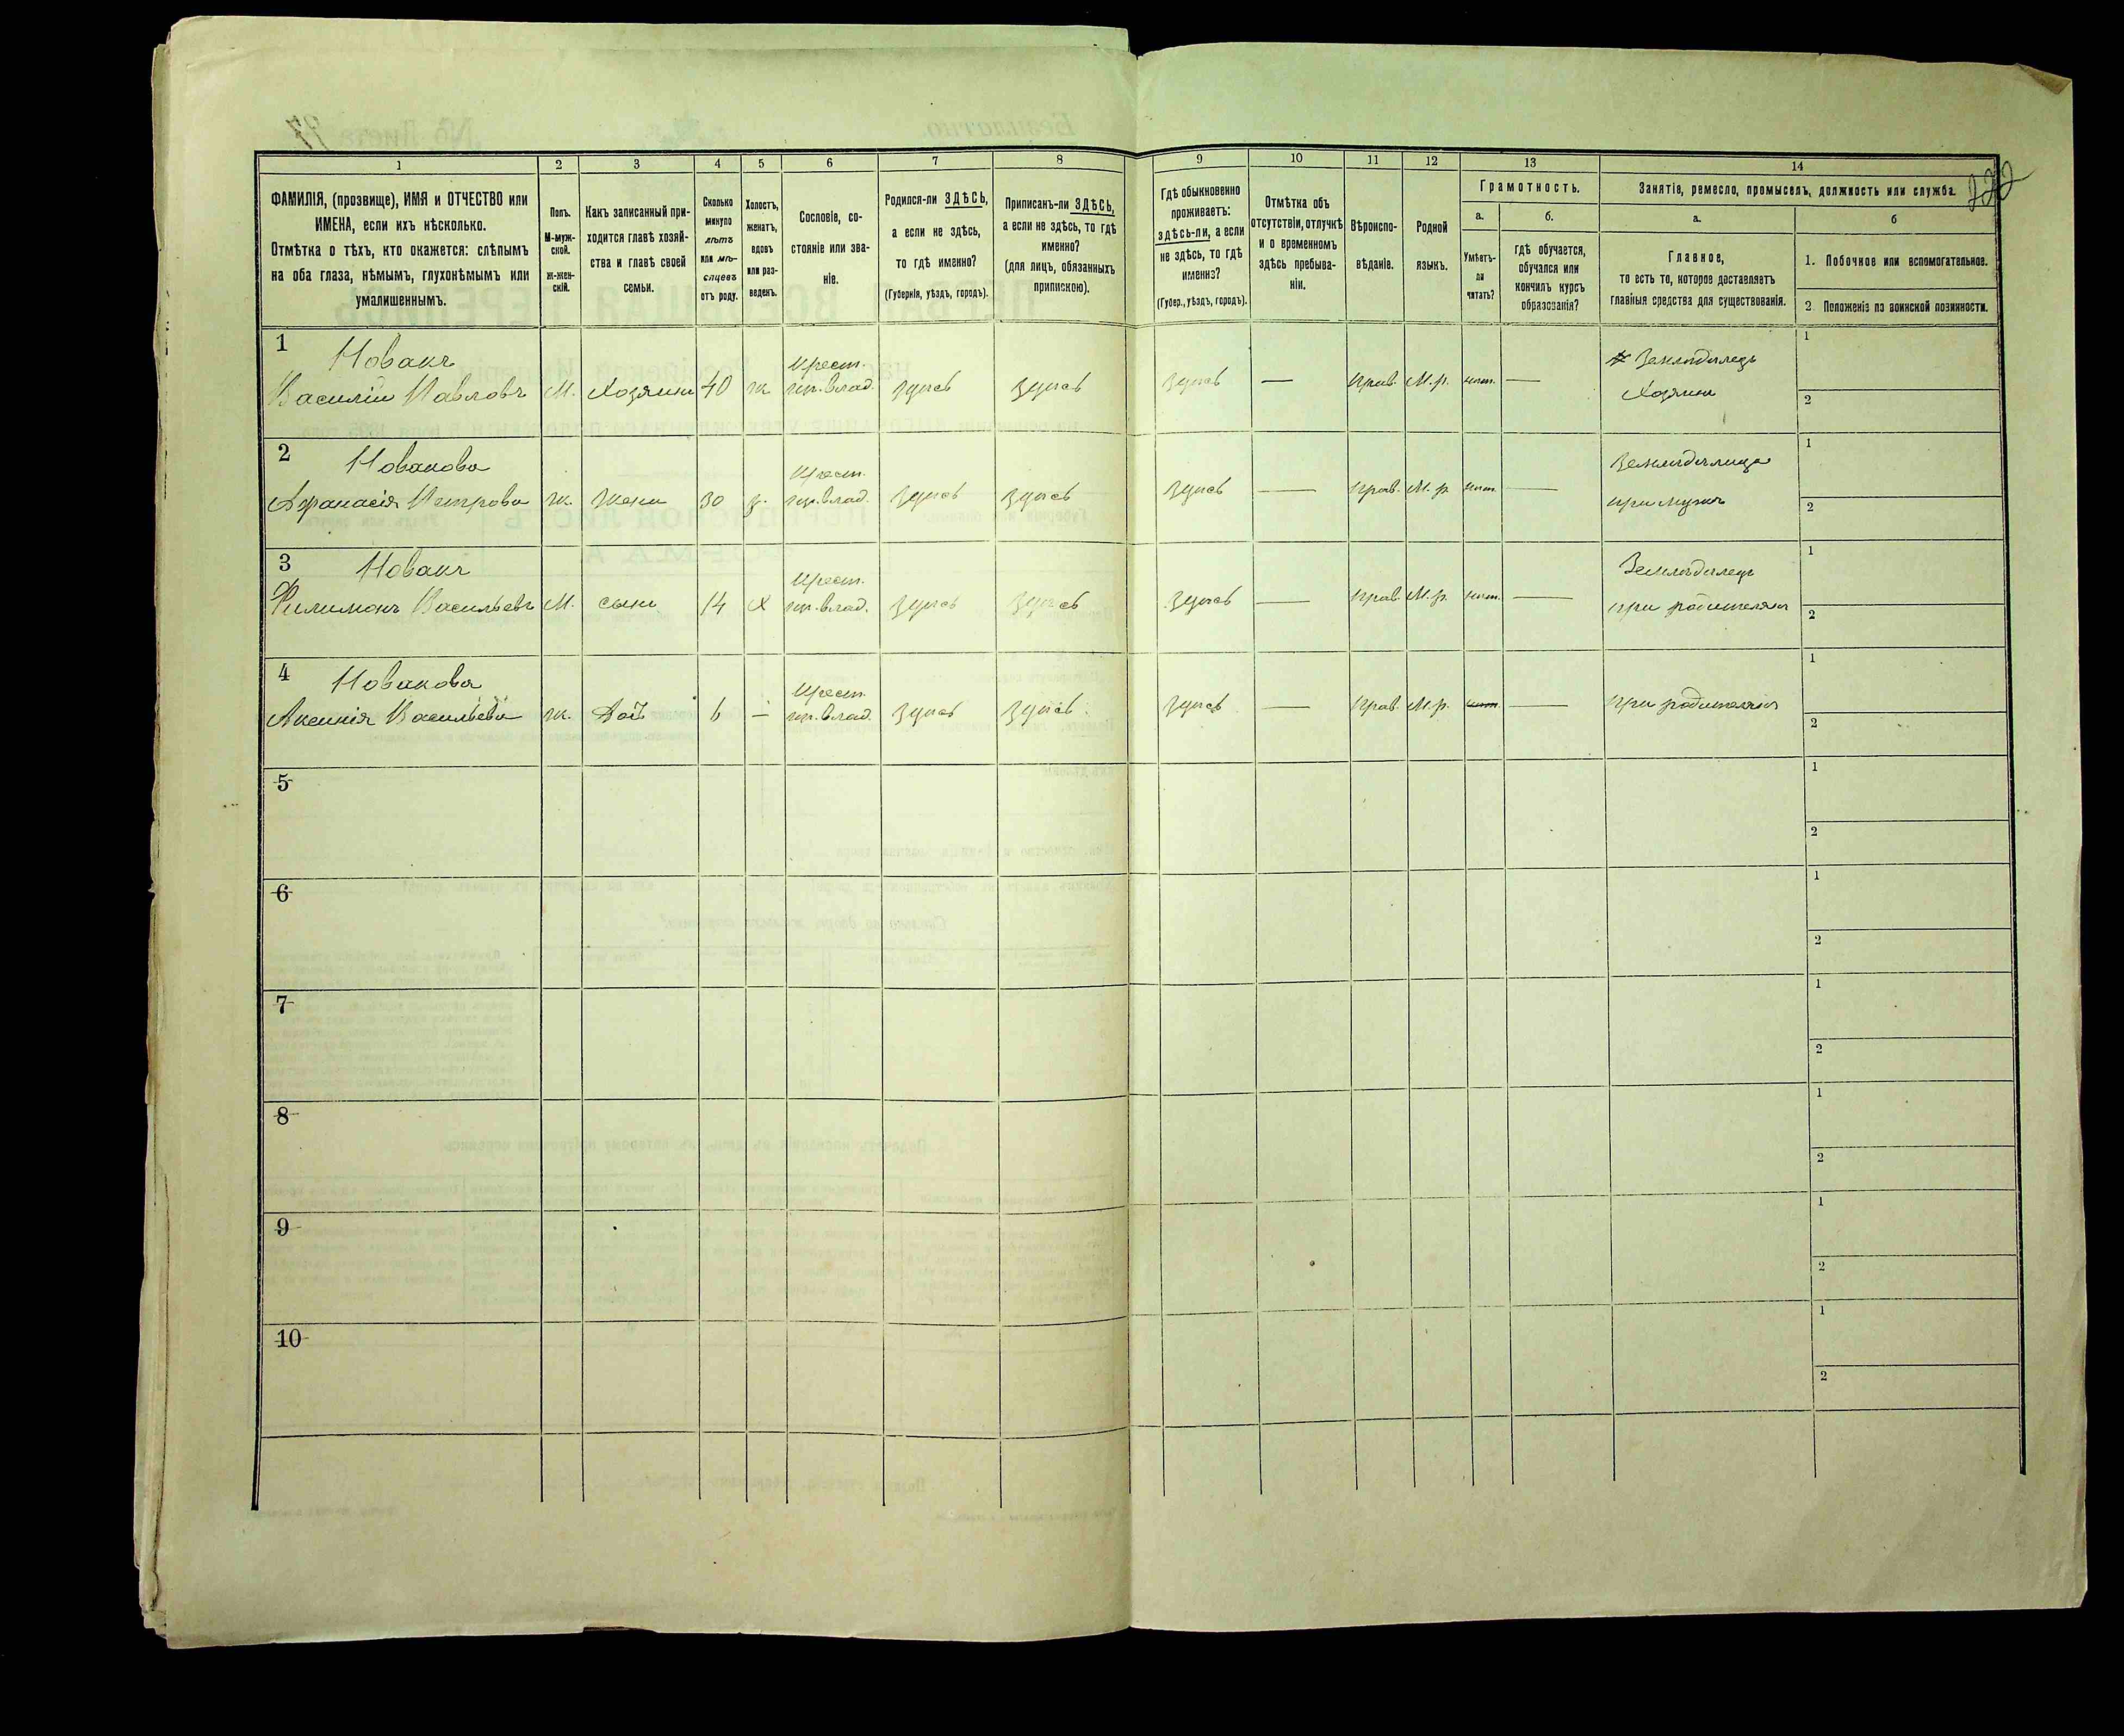 1
2
3
4
5
6
7
8
9
10
11
12
13
14
ФАМИЛІЯ, (прозвище), ИМЯ и ОТЧЕСТВО или
ИМЕНА, если ихъ нѣсколько.
Отмѣтка о тѣхъ, кто окажется: слѣпымъ
на оба глаза, нѣмымъ, глухонѣмымъ или
умалишеннымъ.
Полъ.
М-муж-
ской.
ж-жен-
скій.
Какъ записанный при-
ходится главѣ хозяй-
ства и главѣ своей
семьи.
Сколько
минуло
лѣтъ
или мѣ-
сяцевъ
отъ роду.
Холостъ,
женатъ,
вдовъ
или раз-
веденъ.
Сословіе, со-
стояніе или зва-
ніе.
Родился-ли ЗДѢСЬ,
а если не здѣсь,
то гдѣ именно?
(Губернія, уѣздъ, городъ).
Приписанъ-ли ЗДѢСЬ,
а если не здѣсь, то гдѣ
именно?
(для лицъ, обязанныхъ
припискою).
Гдѣ обыкновенно
проживаетъ:
здѣсь-ли, а если
не здѣсь, то гдѣ
именно?
(Губер., уѣздъ, городъ).
Отмѣтка объ
отсутствіи, отлучкѣ
и о временномъ
здѣсь пребыва-
ніи.
Вѣроиспо-
вѣданіе.
Родной
языкъ.
Грамотность.
а.
б.
Умѣетъ-
ли
читать?
гдѣ обучается,
обучался или
кончилъ курсъ
образованія?
Занятіе, ремесло, промыселъ, должность или служба.
222
а.
б
Главное,
то есть то, которое доставляетъ
главныя средства для существованія.
1. Побочное или вспомогательное.
2. Положеніе по воинской повинности.
1 Новакъ
Василій Павловъ М. Хозяинъ 40 ж Крест. гр. влад. Здѣсь Здѣсь Здѣсь — Прав. М.р. нѣт. — Земледѣлецъ
Хозяинъ
1
2
2 Новакова
Афанасія Петрова ж. Жена 30 з. Крест. гр. влад. Здѣсь Здѣсь Здѣсь — Прав. М.р. нѣт. — Земледѣлица
при мужѣ
1
2
3 Новакъ
Филимонъ Васильевъ М. сынъ 14 Х Крест. гр. влад. Здѣсь Здѣсь Здѣсь — Прав. М.р. нѣт. — Земледѣлецъ
при родителяхъ
1
2
4 Новакова
Аксинія Васильева ж. Доч 6 — Крест. гр. влад. Здѣсь Здѣсь Здѣсь — Прав. М.р. нѣт. — при родителяхъ
1
2
5
1
2
6
1
2
7
1
2
8
1
2
9
1
2
10
1
2